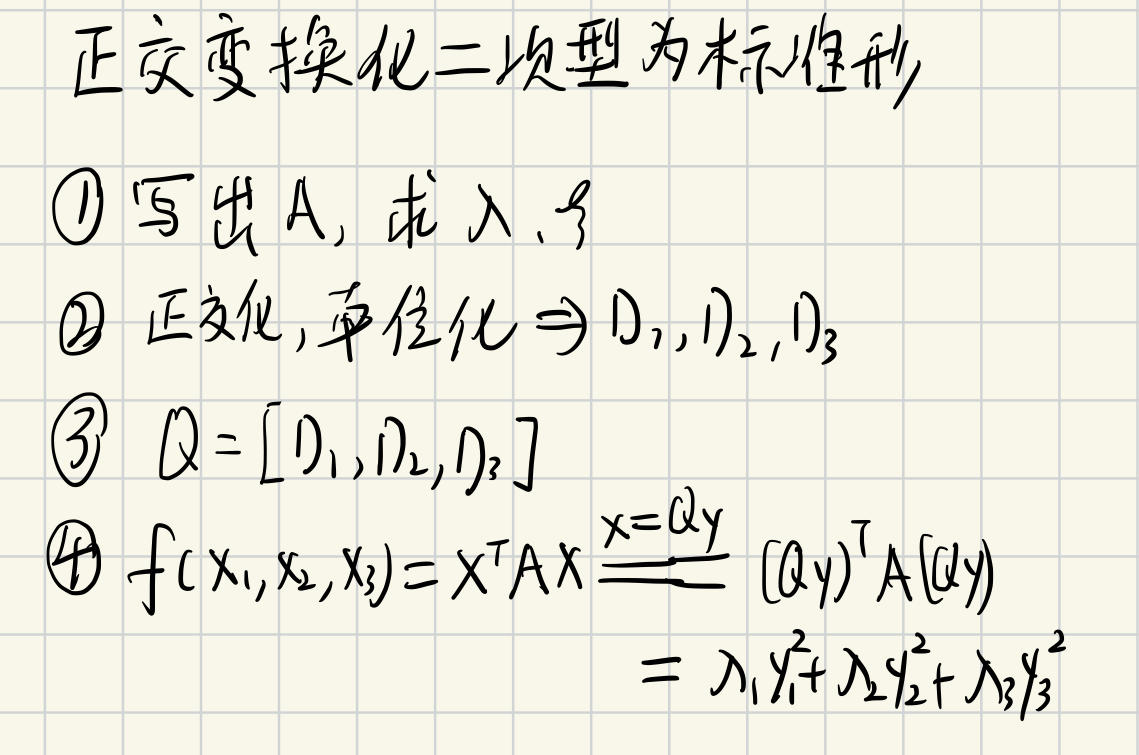 正交变换化二次型为标准形
① 写出 A, 求 λ、ξ
② 正交化, 单位化 ⇒ η₁, η₂, η₃
③ Q = [η₁, η₂, η₃]
④ f(x₁, x₂, x₃) = xᵀAx \xlongequal{x=Qy} (Qy)ᵀA(Qy)
= λ₁y₁² + λ₂y₂² + λ₃y₃²